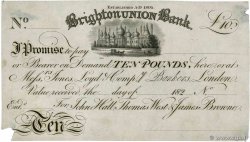 ESTABLISHED A.D. 1805
Brighton Union Bank.
No
£10
I Promise to pay
or Bearer on Demand TEN POUNDS, here or at
Messrs. Jones, Loyd & Compy. Bankers, London
Value received the day of 182 No
For John Hall, Thomas West & James Browne
Entd.
Ten